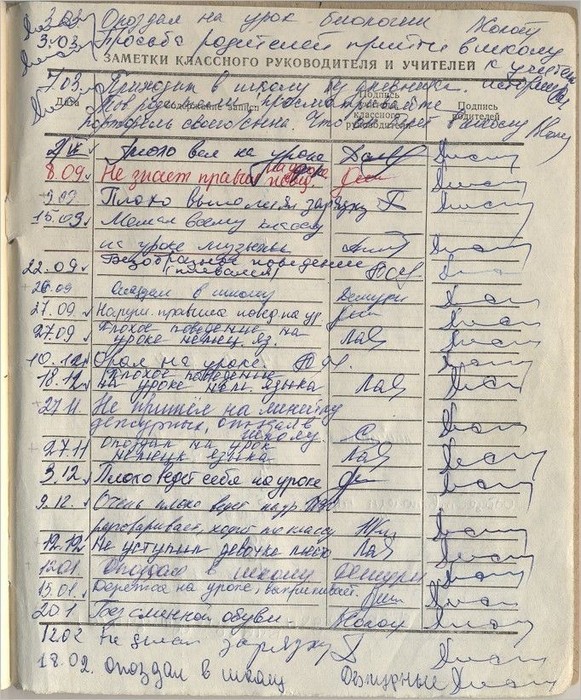 3.03 Опоздал на урок биологии
3.03. Просьба родителей прийти в школу
к учителю
ЗАМЕТКИ КЛАССНОГО РУКОВОДИТЕЛЯ И УЧИТЕЛЕЙ
7.03. Приходит в школу без дневника.
Дата
Содержание записи
Подпись классного руководителя
Подпись родителей
Тов. родители, просматривайте
портфель своего сына. Что он
Плохо вел на уроке
8.09. Не знает правил повед. на уроке
9.09 Плохо выполнял зарядку
16.09 Мешал всему классу
на уроке музыки
22.09. Безобразное поведение
(плевался)
26.09 Опоздал в школу Дежурн
27.09. Наруш. правила повед на ур
27.09 Плохое поведение на
уроке немец. яз. Лая
10.12 Орал на уроке.
18.12 Плохое поведение
на уроке нем. языка Лая
27.11. Не пришёл на линейку
дежурных, опоздал в
школу.
27.11 Опоздал на урок
немецк языка Лая
3.12. Плохо ведёт себя на уроке
9.12. Очень плохо ведёт на ур.
разговаривает, ходит по классу
12.12 Не уступил девочке место Лая
12.01. Опоздал в школу Дежурн
15.01. Дерётся на уроке, выкрикивает.
20.1 Без сменной обуви.
12.02 Не делал зарядку
18.02. опоздал в школу Дежурные